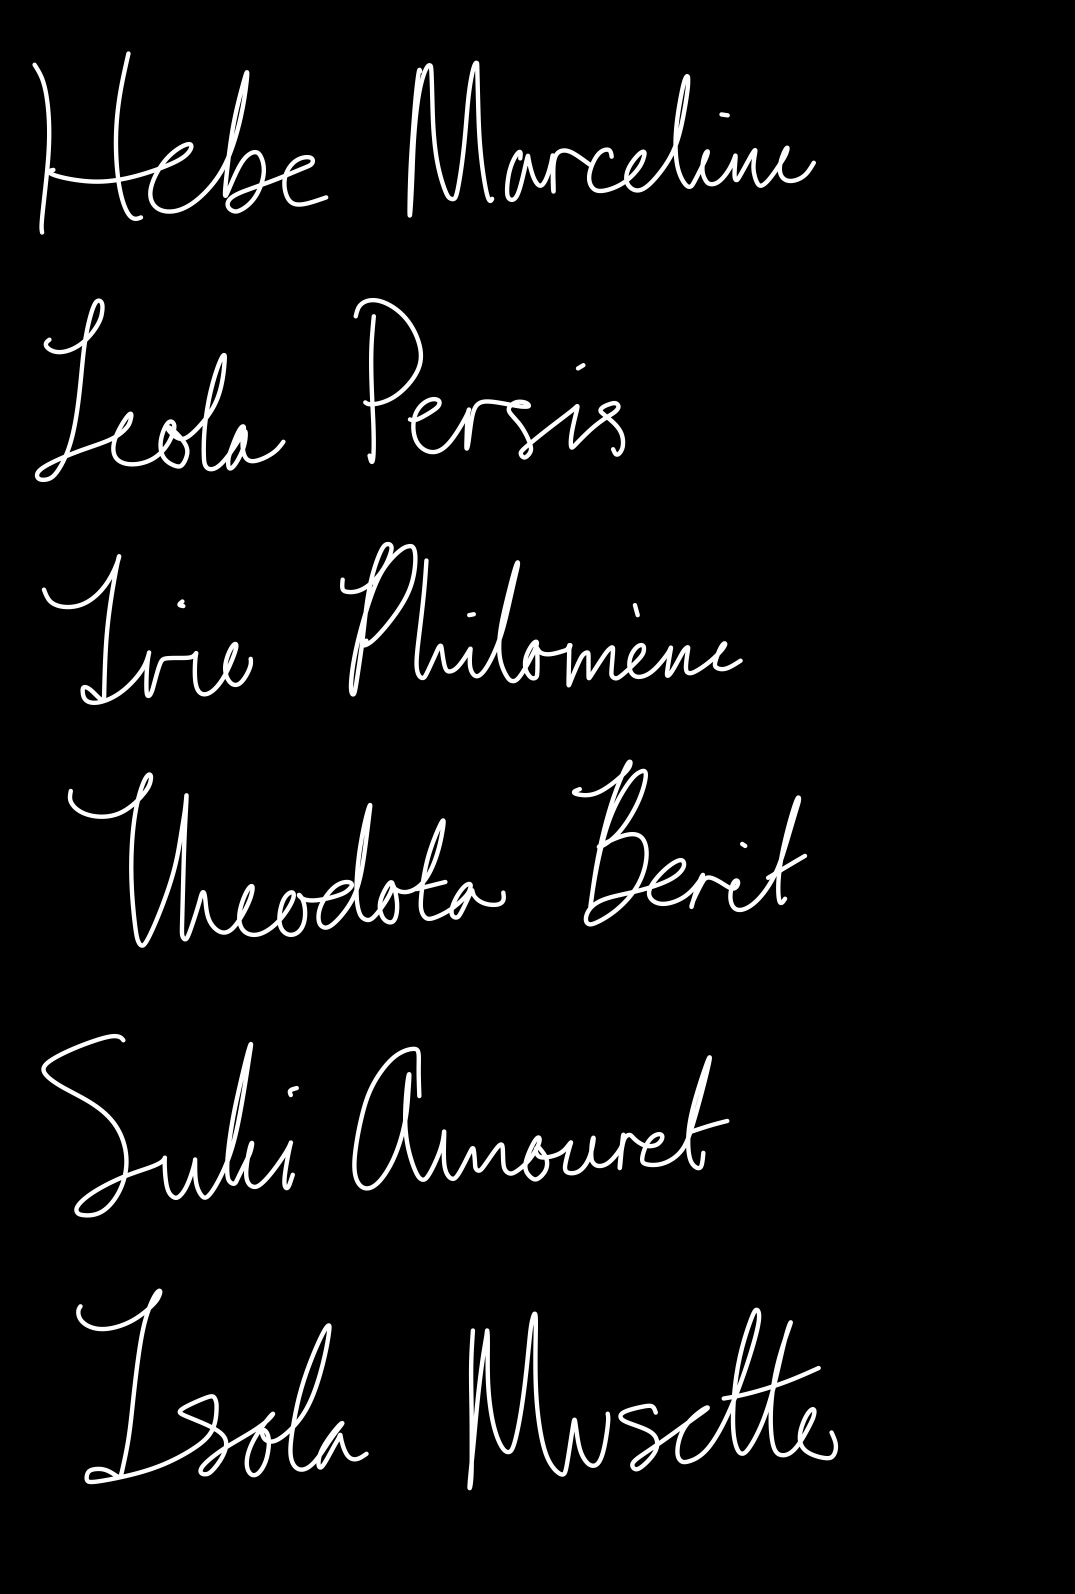 Hebe Marceline
Leola Persis
Irie Philomène
Theodota Berit
Suki Amouret
Isola Musette